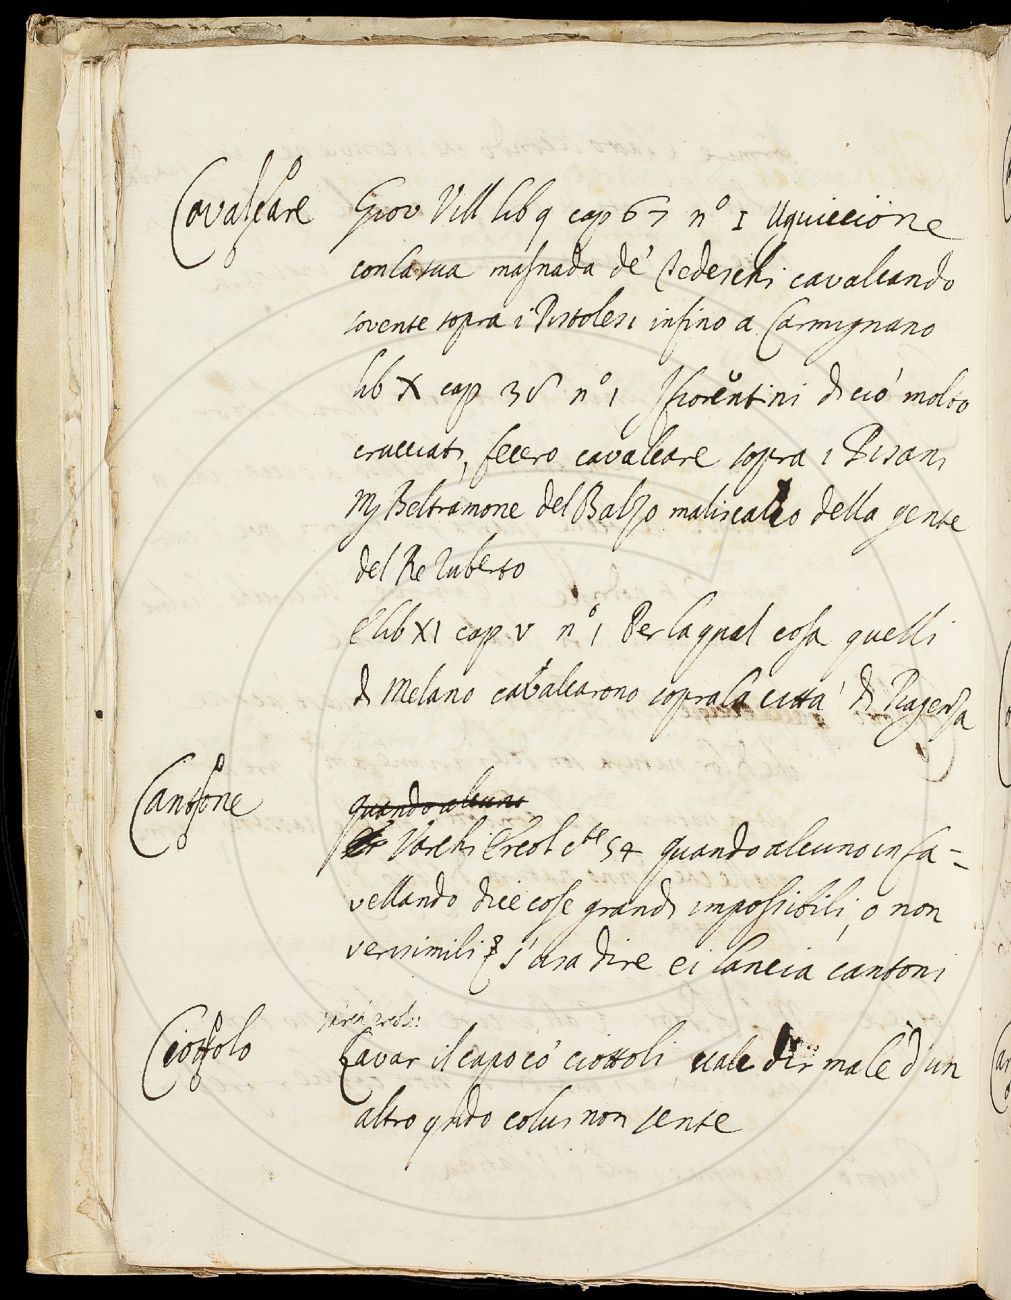 Cavalcare Giov Vill lib 9 cap 67 n° 1 Uguiccione
con la sua masnada de' Tedeschi cavalcando
sovente sopra i Pistolesi infino a Carmignano
lib X cap 36 n° 1 I fiorentini di ciò molto
crucciati, fecero cavalcare sopra i Pisani
Mʃ Beltramone del Balzo maliscalco della gente
del Re Ruberto
E lib XI cap V n° 1 Per la qual cosa quelli
di Melano cavalcarono sopra la città di Piagenza
Cantone quando alcuno
Varchi Ercol cte 54 quando alcuno in fa=
vellando dice cose grandi impossibili, o non
verisimili s'usa dire ei lancia cantoni
Varchi Ercol:
Ciottolo Lavar il capo co' ciottoli, vale dir male d'un
altro qndo colui non sente